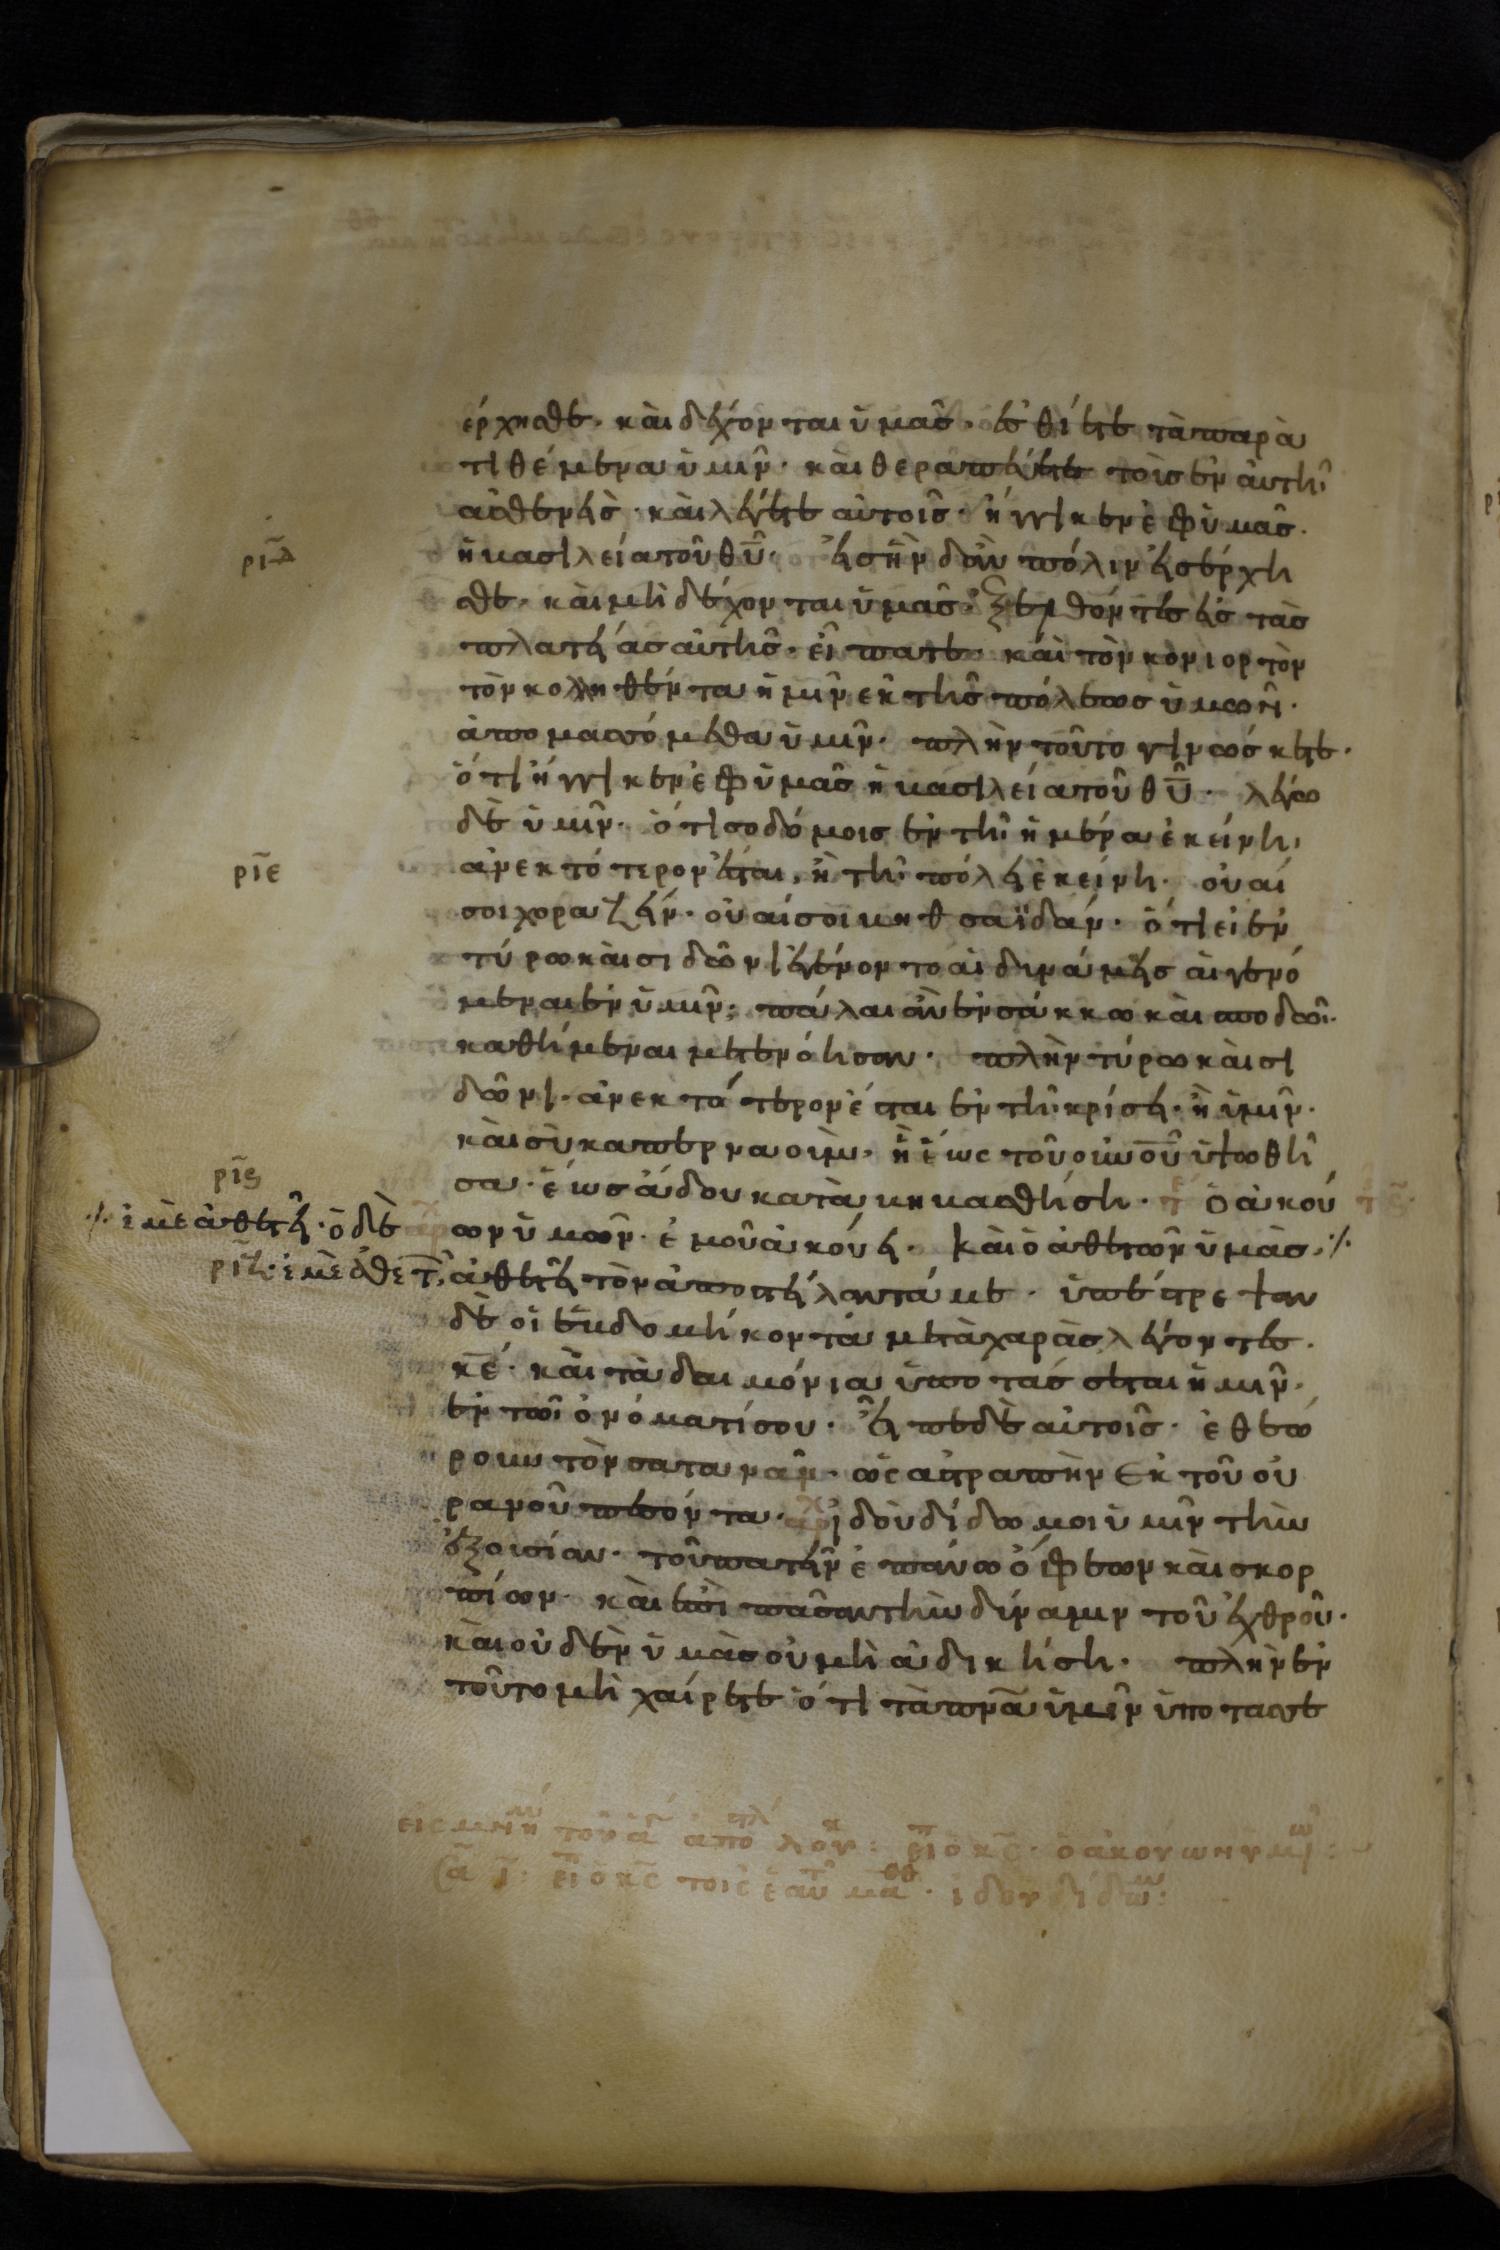 έρχησθε· και δέχονται ὑμᾶς· ἐσθίετε τὰ παρα
τιθέμενα ὑμῖν· καὶ θεραπεύετε τοὺς ἐν αὐτῆι
ἀσθενεῖς· καὶ λέγετε αὐτοῖς· ἤγγικεν ἐφ ὑμᾶς·
ριδ
ἡ βασιλεία τοῦ θυ· εἰς ἣν δ ἂν πόλιν εἰσέρχη
σθε· καὶ μὴ δέχονται ὑμᾶς· ἐξελθόντες εἰς τὰς
πλατείας αὐτῆς· εἴπατε· καὶ τὸν κονιορτὸν
τὸν κολληθέντα ἡμῖν ἐκ τῆς πόλεως ὑμῶν·
ἀπομασσόμεθα ὑμῖν· πλὴν τοῦτο γινώσκετε·
ὅτι ἤγγικεν ἐφ ὑμᾶς ἡ βασιλεία τοῦ θυ· λέγω
δὲ ὑμῖν· ὅτι σοδόμοις ἐν τῆι ἡμέρα ἐκείνηι
ριε
ἀνεκτότερον ἔσται, ἢ τῆι πόλει ἐκείνη· οὐαί
σοι χοραζείν· οὐαί σοι βηθσαϊδάν· ὅτι εἰ ἐν
τύρω καὶ σιδῶνι ἐγένοντο αἱ δυνάμεις αἱ γενό
μεναι ἐν ὑμῖν· πάλαι ἂν ἐν σάκκω καὶ σποδῶι·
καθήμεναι μετενόησαν· πλὴν τύρω καὶ σι
δῶνι· ἀνεκτότερον ἔσται ἐν τῆι κρίσει· ἢ ὑμῖν·
καὶ σὺ καπερναούμ· ἡ ἕως τοῦ οὐνοῦ ὑψωθεῖ
ριϛ
σα· ἕως ἅδου καταβηβασθήση· ὁ ἀκού
⁒ ἐμὲ ἀθετεῖ· ὁ δὲ
ων ὑμῶν· ἐμοῦ ἀκούει· καὶ ὁ ἀθετῶν ὑμᾶς ⁒
ριζ· ἐμὲ ἀθετ
ἀθετεῖ τὸν ἀποστείλαντά με· ὑπέστρεψαν
δὲ οἱ ἑβδομήκοντα μετὰ χαρᾶς λέγοντες·
κε· καὶ τὰ δαιμόνια ὑποτάσσεται ἡμῖν·
ἐν τῶι ὀνόματί σου· εἶπε δὲ αὐτοῖς· ἐθεώ
ρουν τὸν σατανᾶν· ὡς ἀστραπὴν ἐκ τοῦ οὐ
ρανοῦ πεσόντα· ἰδοὺ δίδωμι ὑμῖν τὴν
ἐξουσίαν· τοῦ πατεῖν ἐπάνω ὄφεων καὶ σκορ
πίων· καὶ ἐπὶ πᾶσαν τὴν δύναμιν τοῦ ἐχθροῦ·
καὶ οὐδὲν ὑμᾶς οὐ μὴ ἀδικήση· πλὴν ἐν
τοῦτο μὴ χαίρετε ὅτι τὰ πνα ὑμῖν ὑποτάσσε